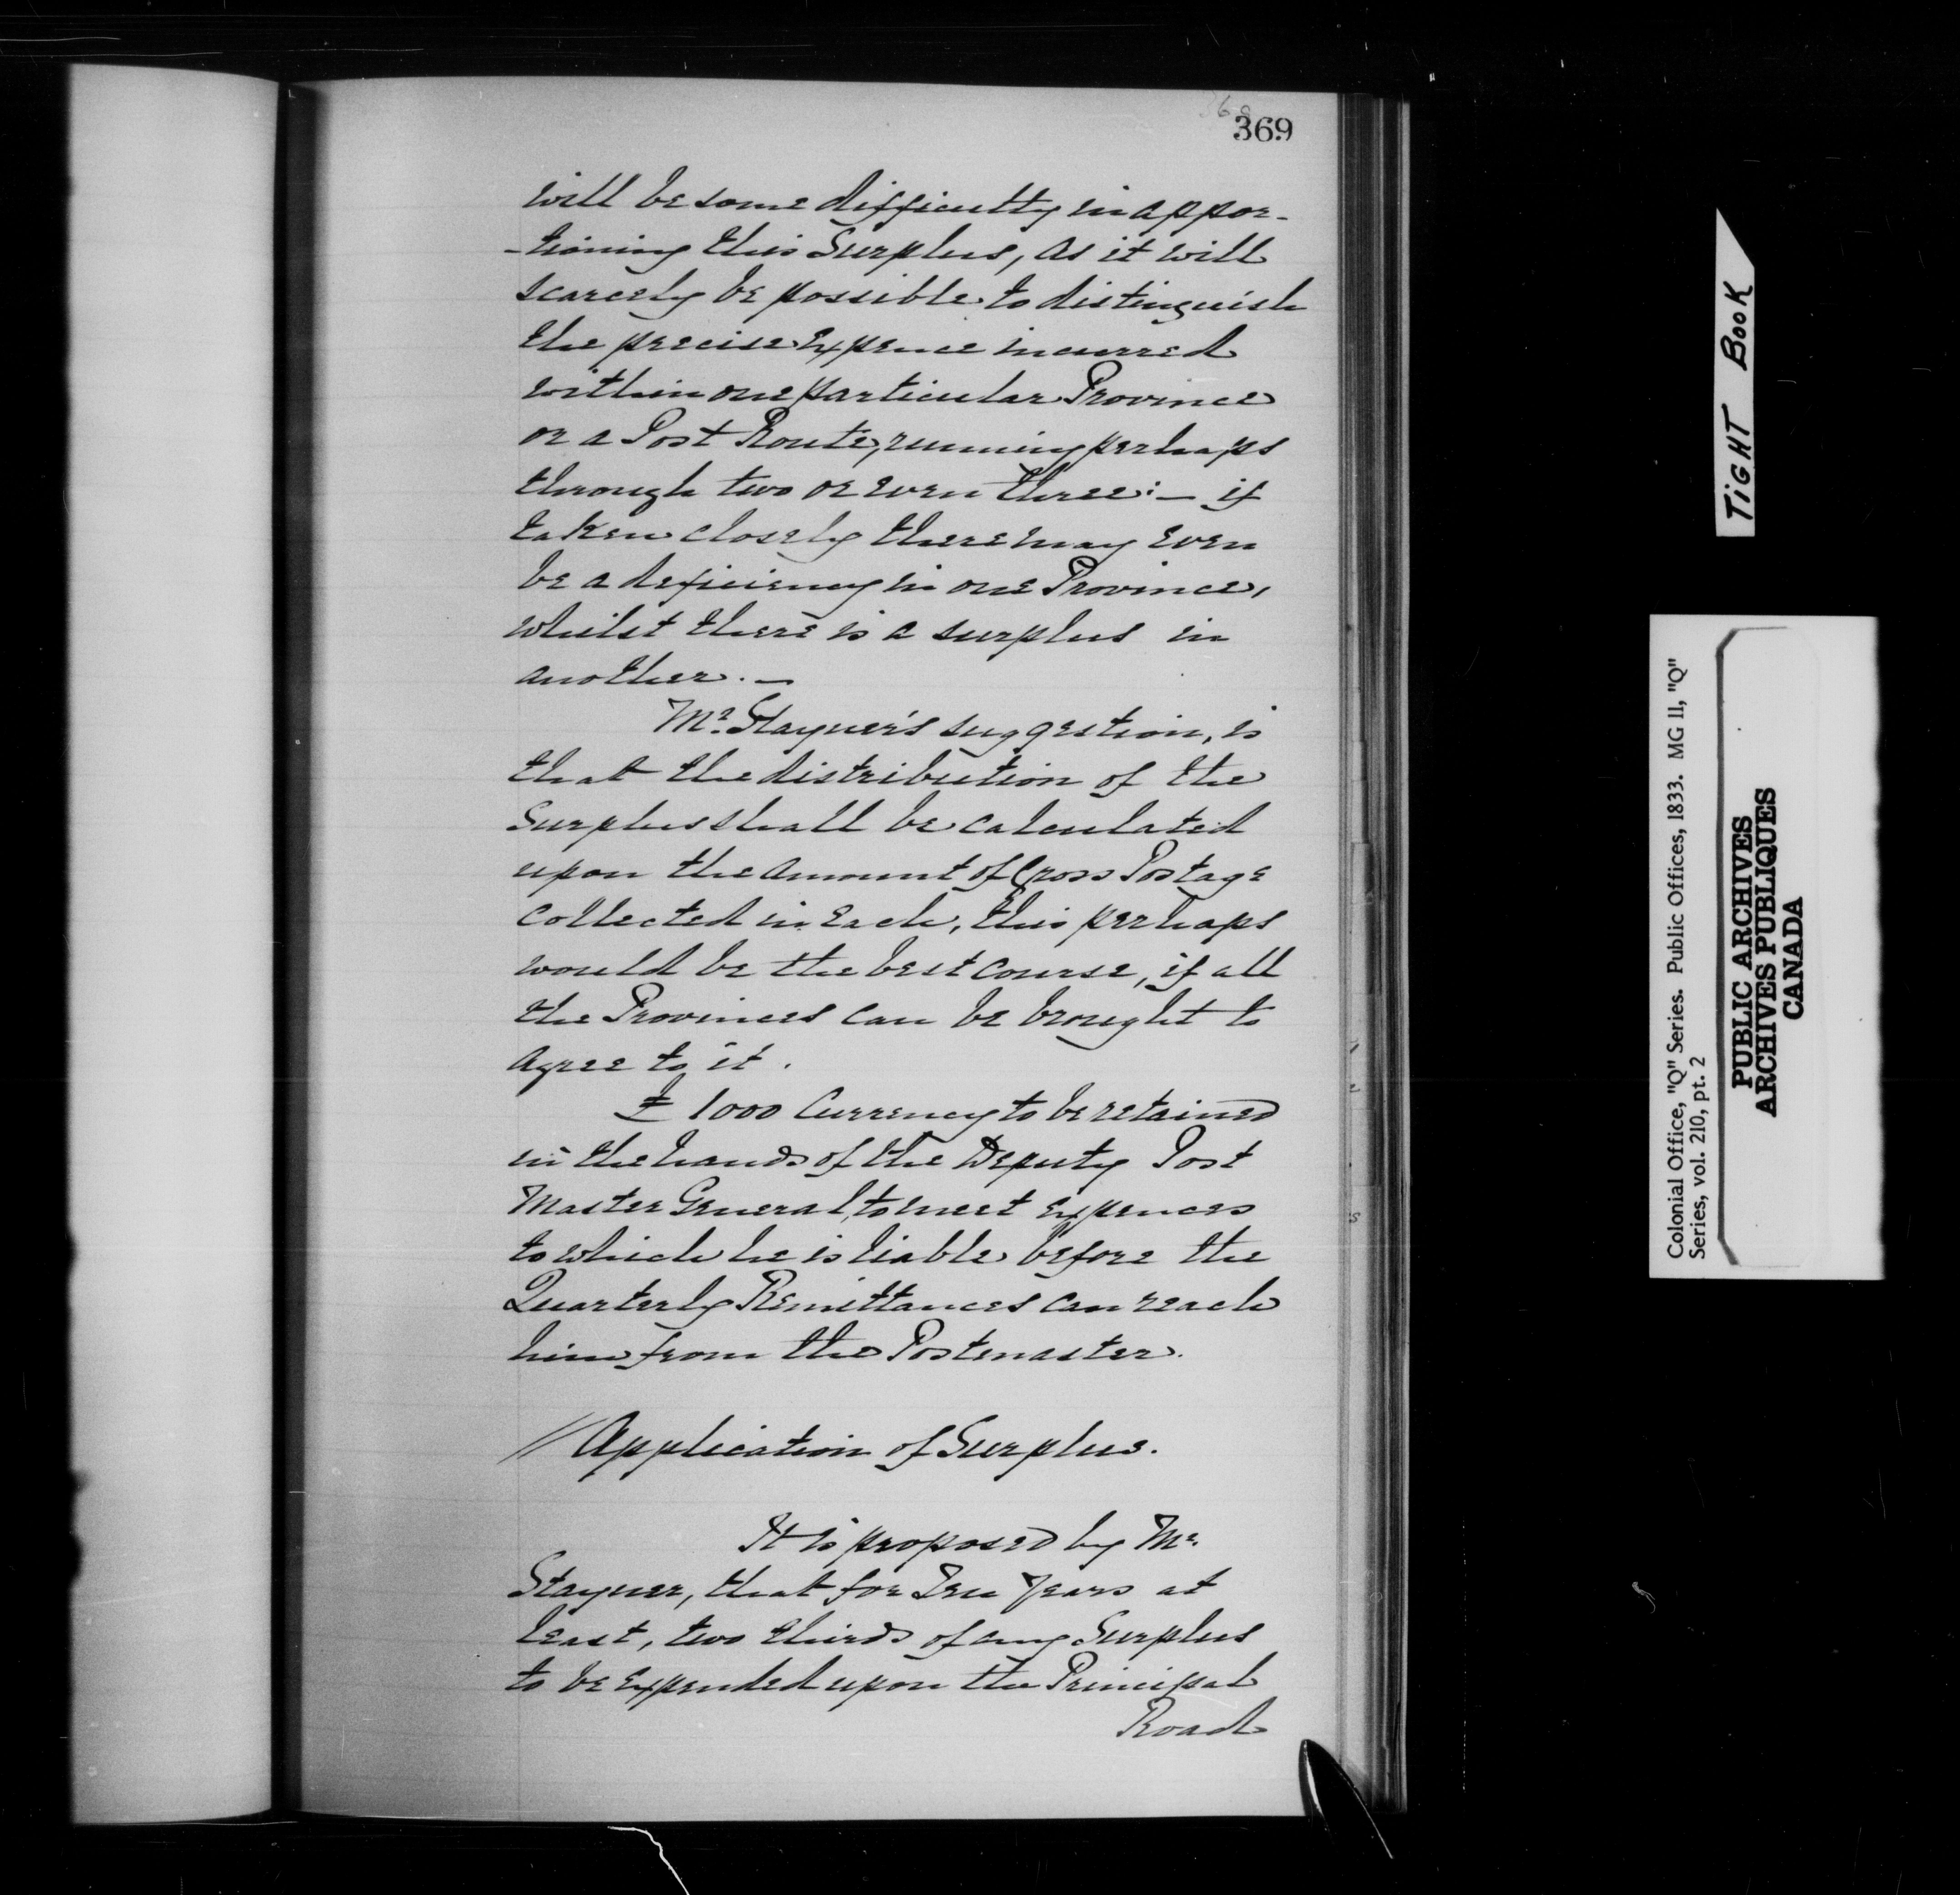 368
369
will be some difficulty in appor-
-tioning this Surplus, as it will
scarcely be possible to distinguish
the precise Expence incurred
within one particular Province
or a Post Route, running perhaps
through two or even three:— if
taken closely there may even
be a deficiency in one Province,
whilst there is a surplus in
another.—
Mr. Stayner's suggestion, is
that the distribution of the
Surplus shall be calculated
upon the amount of Cross Postage
collected in Each, this perhaps
would be the best course, if all
the Provinces can be brought to
agree to it.
£1000 Currency to be retained
in the hands of the Deputy Post
Master General, to meet expences
to which he is liable before the
Quarterly Remittances can reach
him from the Postmaster.
// Application of Surplus.
It is proposed by Mr.
Stayner, that for Ten Years at
least, two thirds of any Surplus
to be Expended upon the Principal
Road
TIGHT BOOK
Colonial Office, "Q" Series. Public Offices, 1833. MG 11, "Q"
Series, vol. 210, pt. 2
PUBLIC ARCHIVES
ARCHIVES PUBLIQUES
CANADA